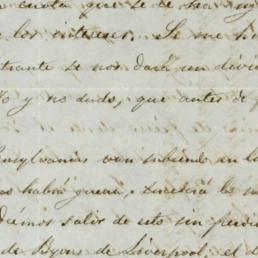 cuota que se de sea
los intereses. Se me h
trante se nos dará un divi
y no dudo, que antes de
nsylvanias van subiendo en l
habrá guerra, sucederá lo m
damos salir de esto sin perdi
de Byers de Liverpool; el d